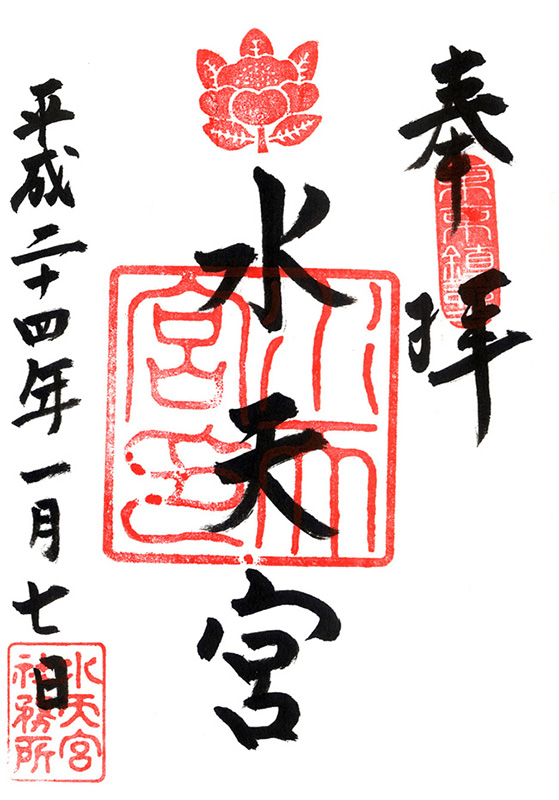 奉拝
東京鎮座
水天宮
水天宮印
平成二十四年一月七日
水天宮
社務所